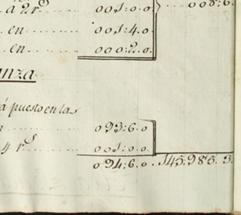 a 2 r.^s ........ 001:0.0 } .... 008:6.
en ........ 001:4.0
en ........ 000:2.0
anza
á puesto en las
........ 093:6.0
4 r.^s ........ 001:0.0
094:6.0 . 145.983.3